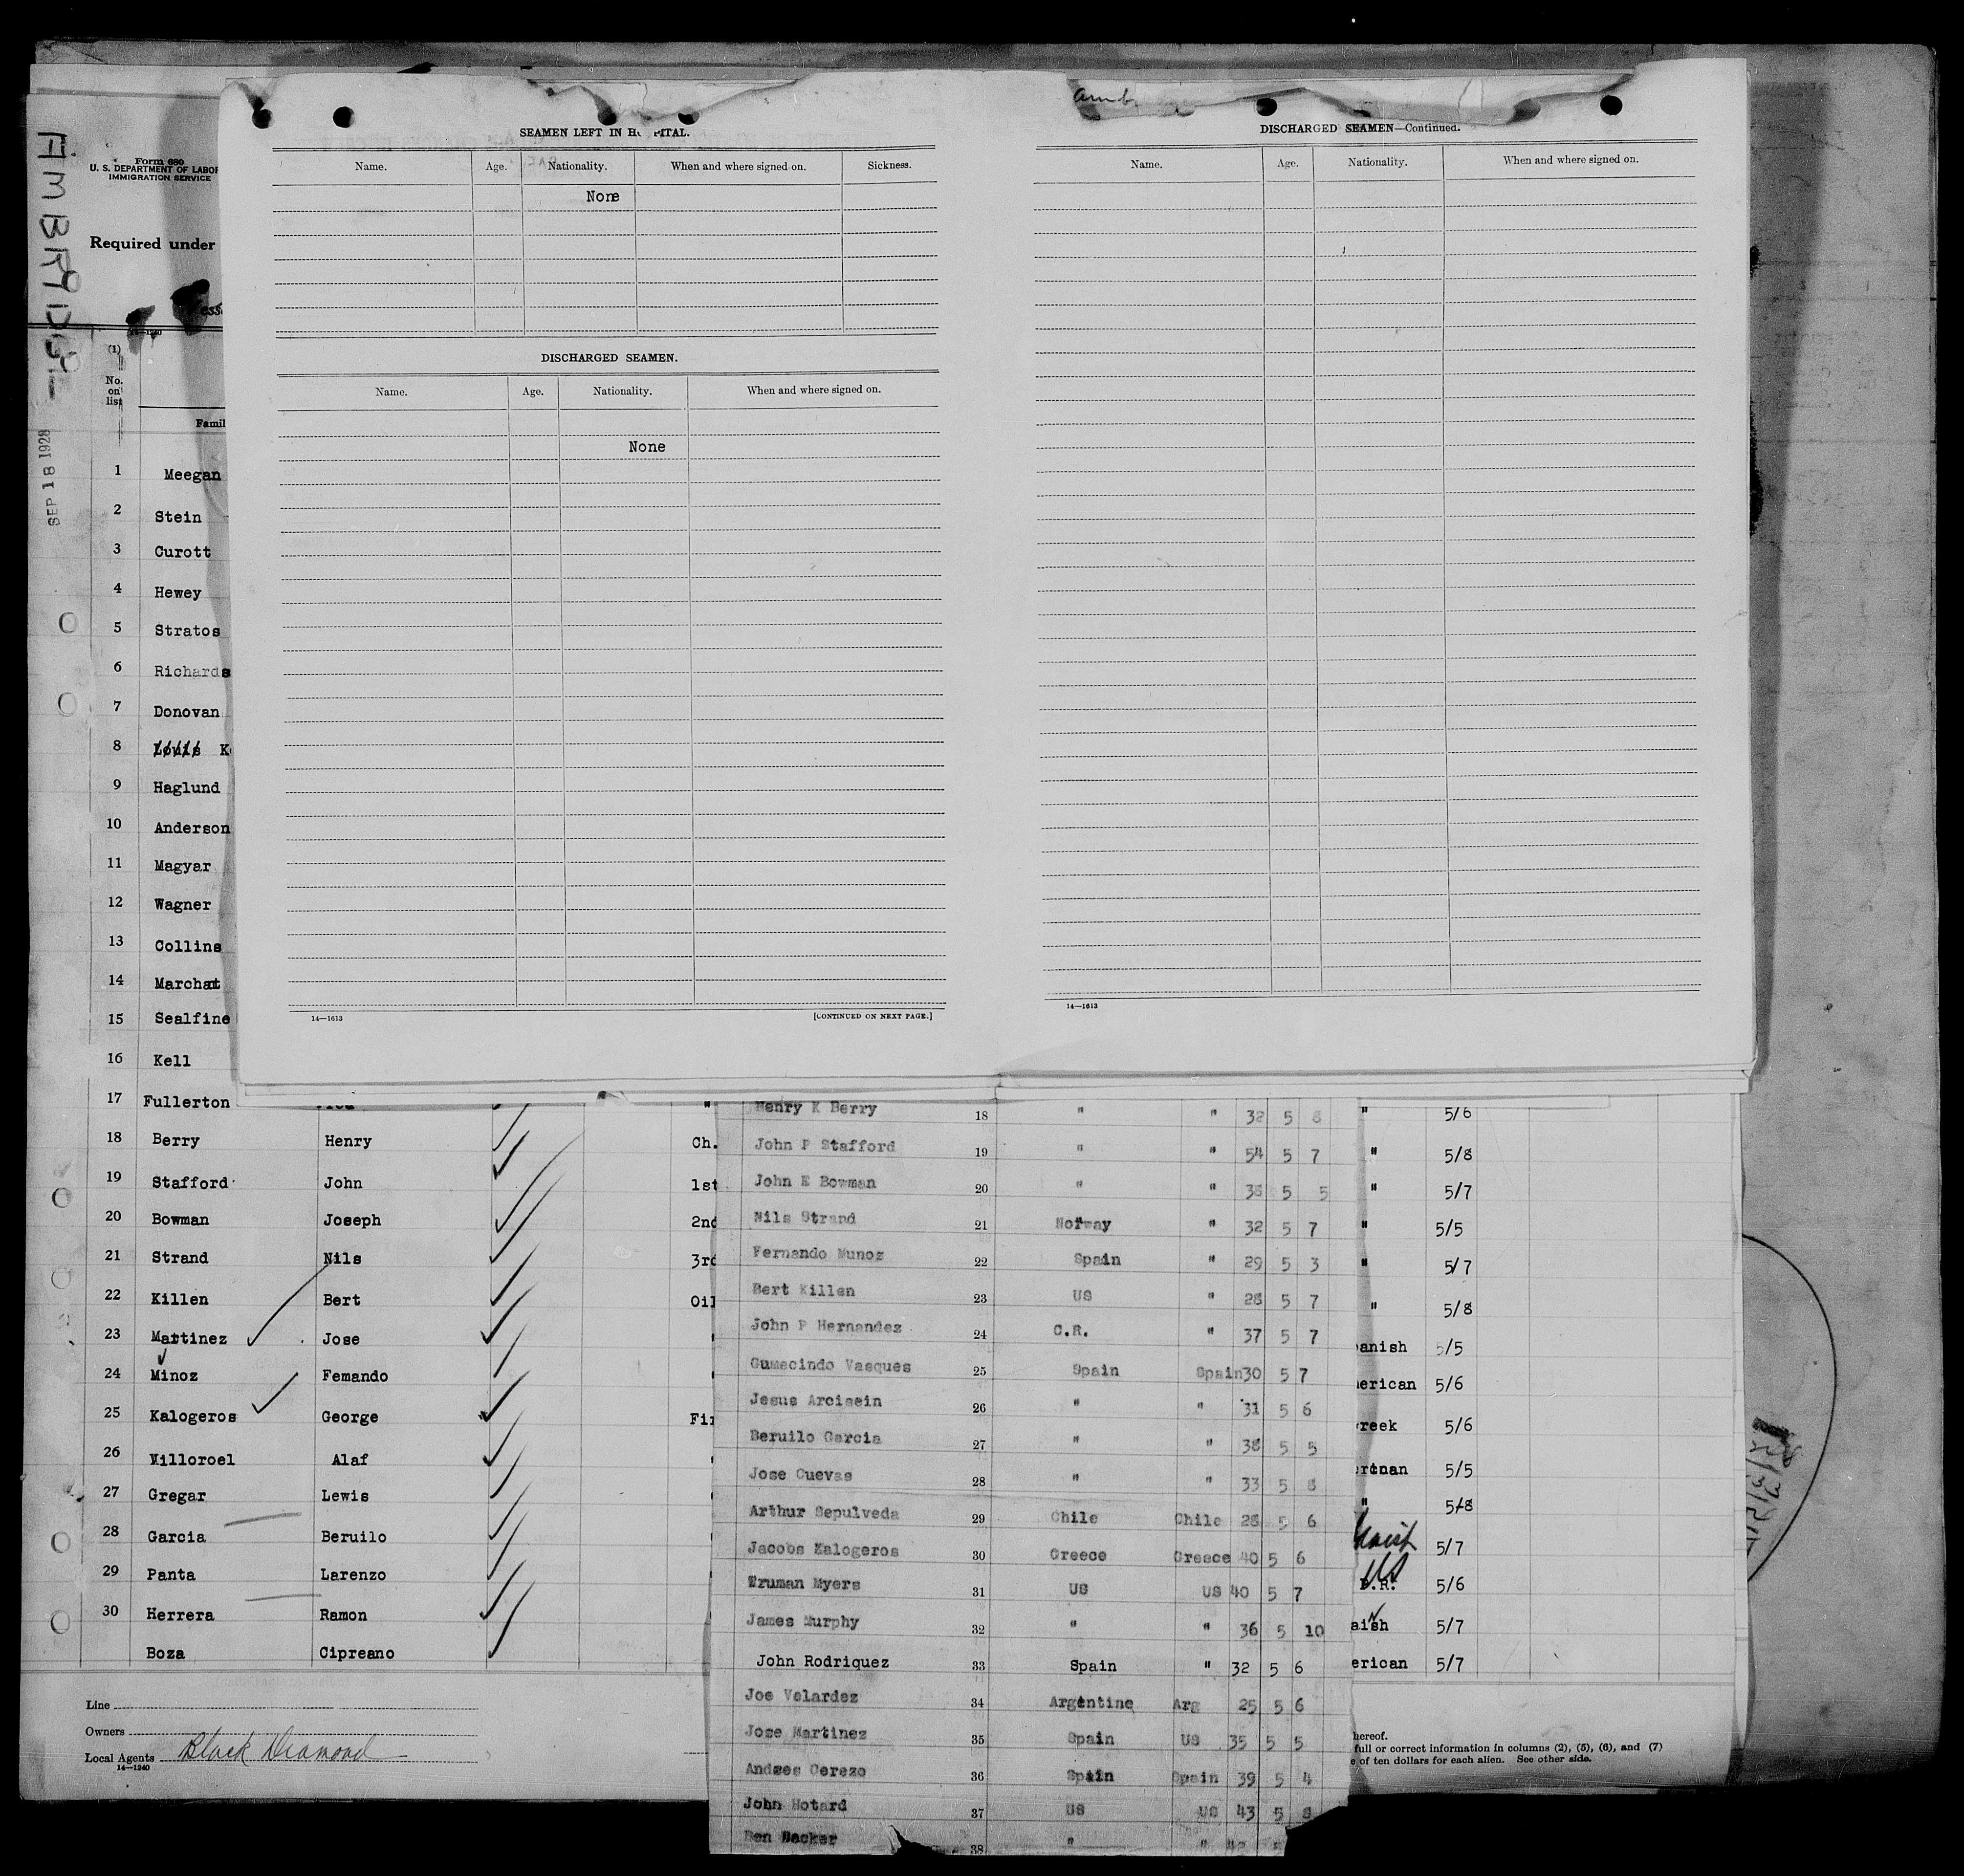 AMBRIDGE
SEP 18 1928
Form 680
U. S. DEPARTMENT OF LABOR
IMMIGRATION SERVICE
Required under
14—1240
(1)
No. on list
1 Meegan
2 Stein
3 Curott
4 Hewey
5 Stratos
6 Richards
7 Donovan
8 Louis
9 Haglund
10 Anderson
11 Magyar
12 Wagner
13 Collins
14 Marchat
15 Sealfine
16 Kell
17 Fullerton
18 Berry Henry Ch.
19 Stafford John 1st
20 Bowman Joseph 2nd
21 Strand Nils 3rd
22 Killen Bert Oil
23 Martinez Jose
24 Minoz Femando
25 Kalogeros George
26 Villoroel Alaf
27 Gregar Lewis
28 Garcia Beruilo
29 Panta Larenzo
30 Herrera Ramon
Boza Cipreano
Line
Owners
Local Agents Black Diamond
14—1240
SEAMEN LEFT IN HOSPITAL.
Name. Age. Nationality. When and where signed on. Sickness.
None
DISCHARGED SEAMEN.
Name. Age. Nationality. When and where signed on.
None
14—1613 [CONTINUED ON NEXT PAGE.]
DISCHARGED SEAMEN—Continued.
Name. Age. Nationality. When and where signed on.
14—1613
Henry K Berry 18 " " 32 5 8
John P Stafford 19 " " 54 5 7
John E Bowman 20 " " 38 5 5
Nils Strand 21 Norway " 32 5 7
Fernando Munoz 22 Spain " 29 5 3
Bert Killen 23 US " 28 5 7
John P Hernandez 24 C.R. " 37 5 7
Gumecindo Vasques 25 Spain Spain 30 5 7
Jesus Arcisein 26 " " 31 5 6
Beruilo Garcia 27 " " 38 5 5
Jose Cuevas 28 " " 33 5 8
Arthur Sepulveda 29 Chile Chile 28 5 6
Jacobs Kalogeros 30 Greece Greece 40 5 6
Truman Myers 31 US US 40 5 7
James Murphy 32 " " 36 5 10
John Rodriquez 33 Spain " 32 5 6
Joe Velardez 34 Argentine Arg 25 5 6
Jose Martinez 35 Spain US 35 5 5
Andres Cerezo 36 Spain Spain 39 5 4
John Hotard 37 US US 43 5 8
Ben Backer 38 " " 42 5
" 5/6
" 5/8
" 5/7
" 5/5
" 5/7
" 5/8
anish 5/5
erican 5/6
reek 5/6
5/5
" 5/8
5/7
US
5/6
5/7
erican 5/7
hereof.
full or correct information in columns (2), (5), (6), and (7)
of ten dollars for each alien. See other side.